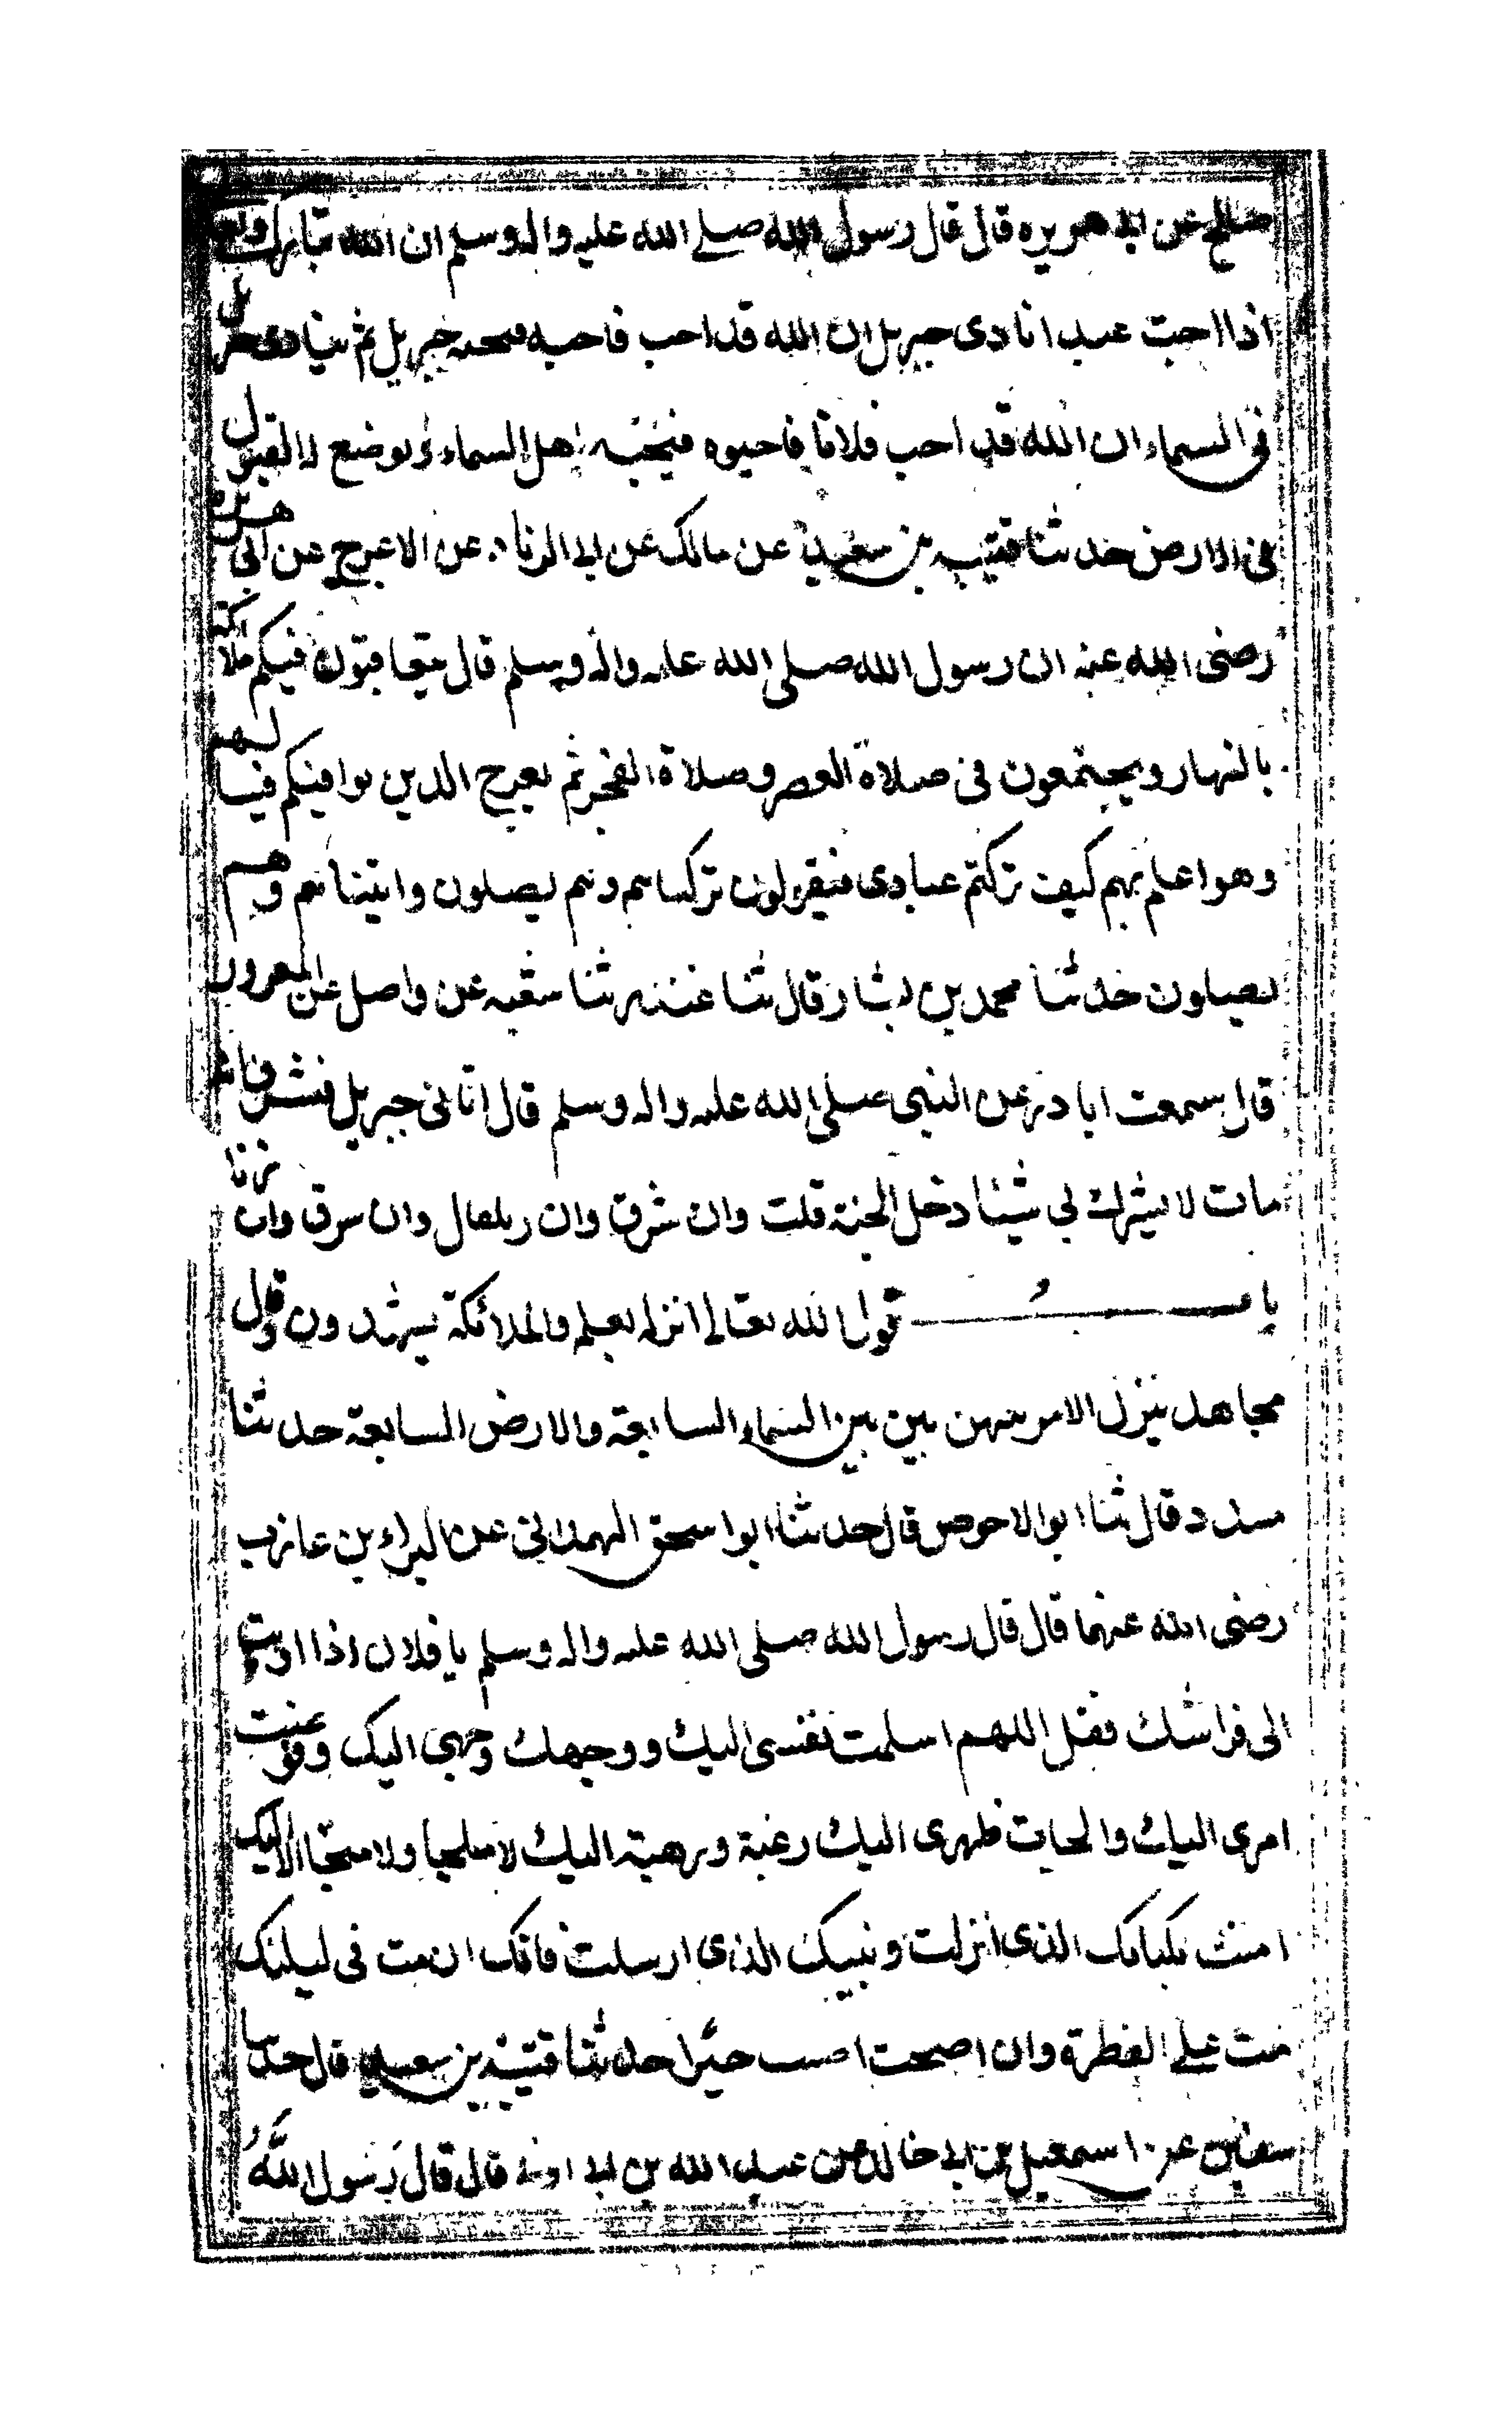 صالح عن ابى هريره قال قال رسول الله صلى الله عليه واله وسلم ان الله تبارك وتعا
اذا احبت عبدا نادى جبريل ان الله قد احب فاحبه فيحبه جبريل ثم ينادى جبريل
فى السماء ان الله قد احب فلانا فاحبوه فيحبه اهل السماء ويوضع له القبول
فى الارض حدثنا قتيبه بن سعيد عن مالك عن ابى الزناد عن الاعرج عن ابى هريرة
رضى الله عنه ان رسول الله صلى الله عليه واله وسلم قال يتعاقبون فيكم ملائكة
بالنهار ويجتمعون فى صلاة العصر وصلاة الفجر ثم يعرج الذين بوافيكم فيسالهم
وهو اعلم بهم كيف تركتم عبادى فيقولون تركناهم وهم يصلون واتيناهم وهم
يصلون حدثنا محمد بن بشار قال ثنا غندر ثنا شعبه عن واصل عن المعرور
قال سمعت ابا ذر عن النبى صلى الله عليه واله وسلم قال اتانى جبريل فبشرنى انه
مات لا يشرك بى شيئا دخل الجنة قلت وان سرق وان زنا قال وان سرق وان زنا
باب قول الله تعالى انزله بعلمه والملائكة يشهدون وقال
مجاهد ينزل الامر بينهن بين بين السماء السابعة والارض السابعة حدثنا
مسدد قال ثنا ابو الاحوص قال حدثنا ابو اسحق الهمدانى عن البراء بن عازب
رضى الله عنهما قال قال رسول الله صلى الله عليه واله وسلم يا فلان اذا اويت
الى فراشك فقل اللهم اسلمت نفسى اليك ووجهت وجهى اليك وفوضت
امرى اليك والجات ظهرى اليك رغبة ورهبة اليك لا ملجا ولا منجا الا اليك
امنت بكتابك الذى انزلت ونبيك الذى ارسلت فانك ان مت فى ليلتك
مت على الفطرة وان اصبحت اصبت خيرا حدثنا قتيبة بن سعيد قال حدثنا
سفين عن اسمعيل بن ابى خالد عن عبد الله بن ابى اوفى قال قال رسول الله